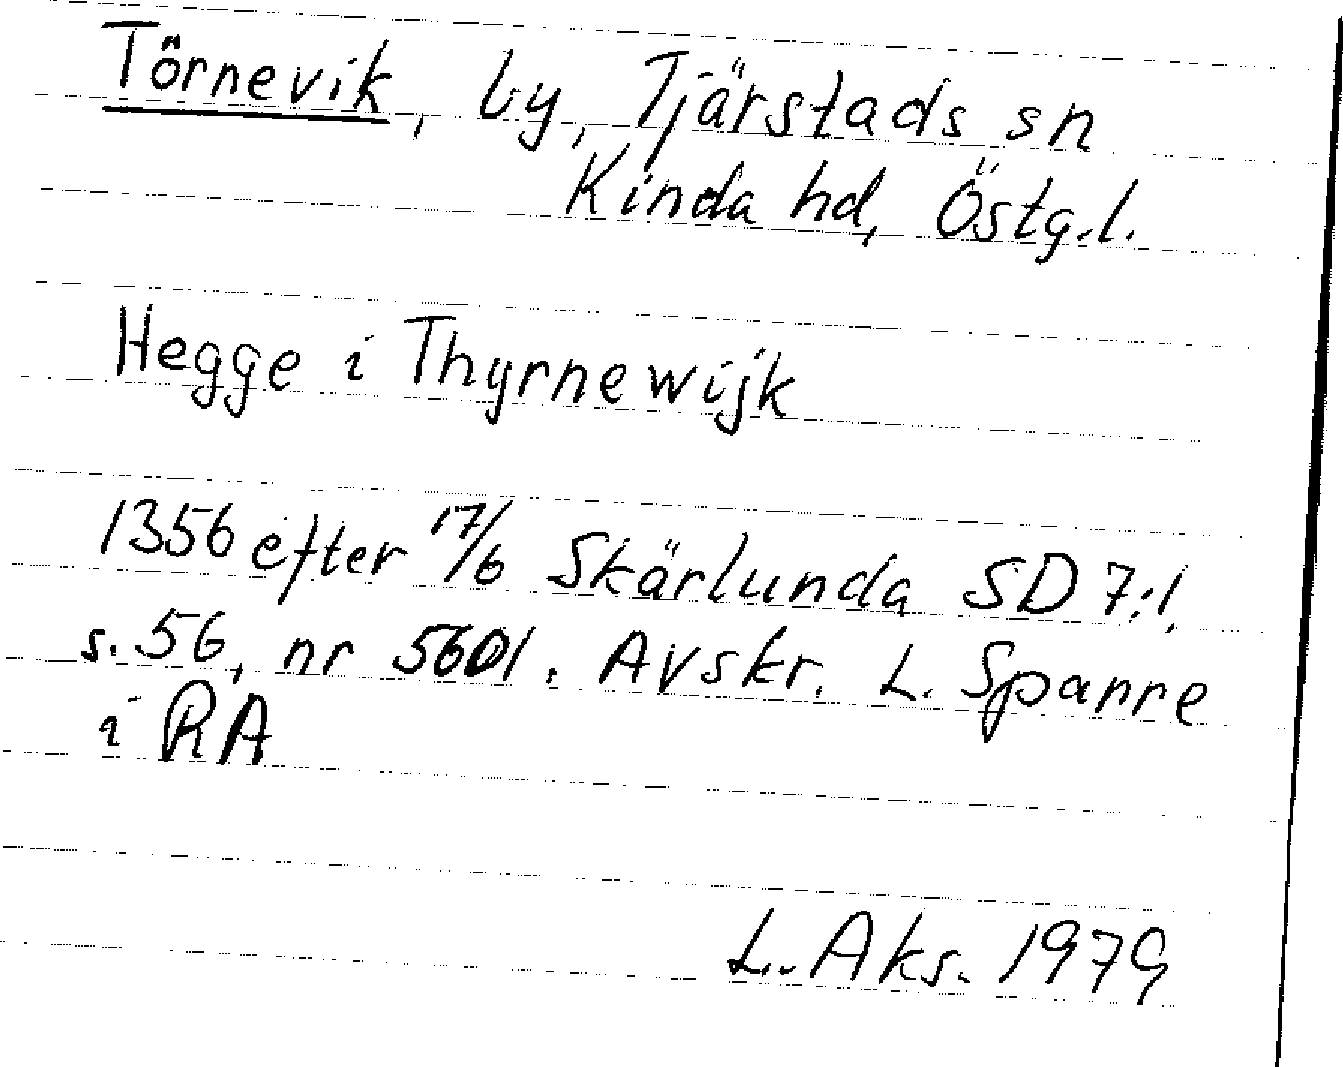 Törnevik, by, Tjärstads sn
Kinda hd, Östg.l.
Hegge i Thyrnewijk
1356 efter 17/6 Skärlunda SD 7:1,
s. 56, nr 5601. Avskr. L. Sparre
i RA
L. Aks. 1979